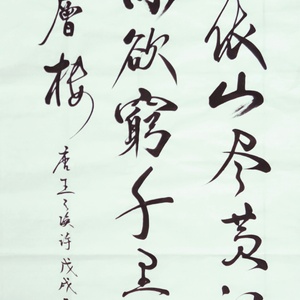 依山尽黄
欲窮千里
層楼
唐王之涣诗戊戌